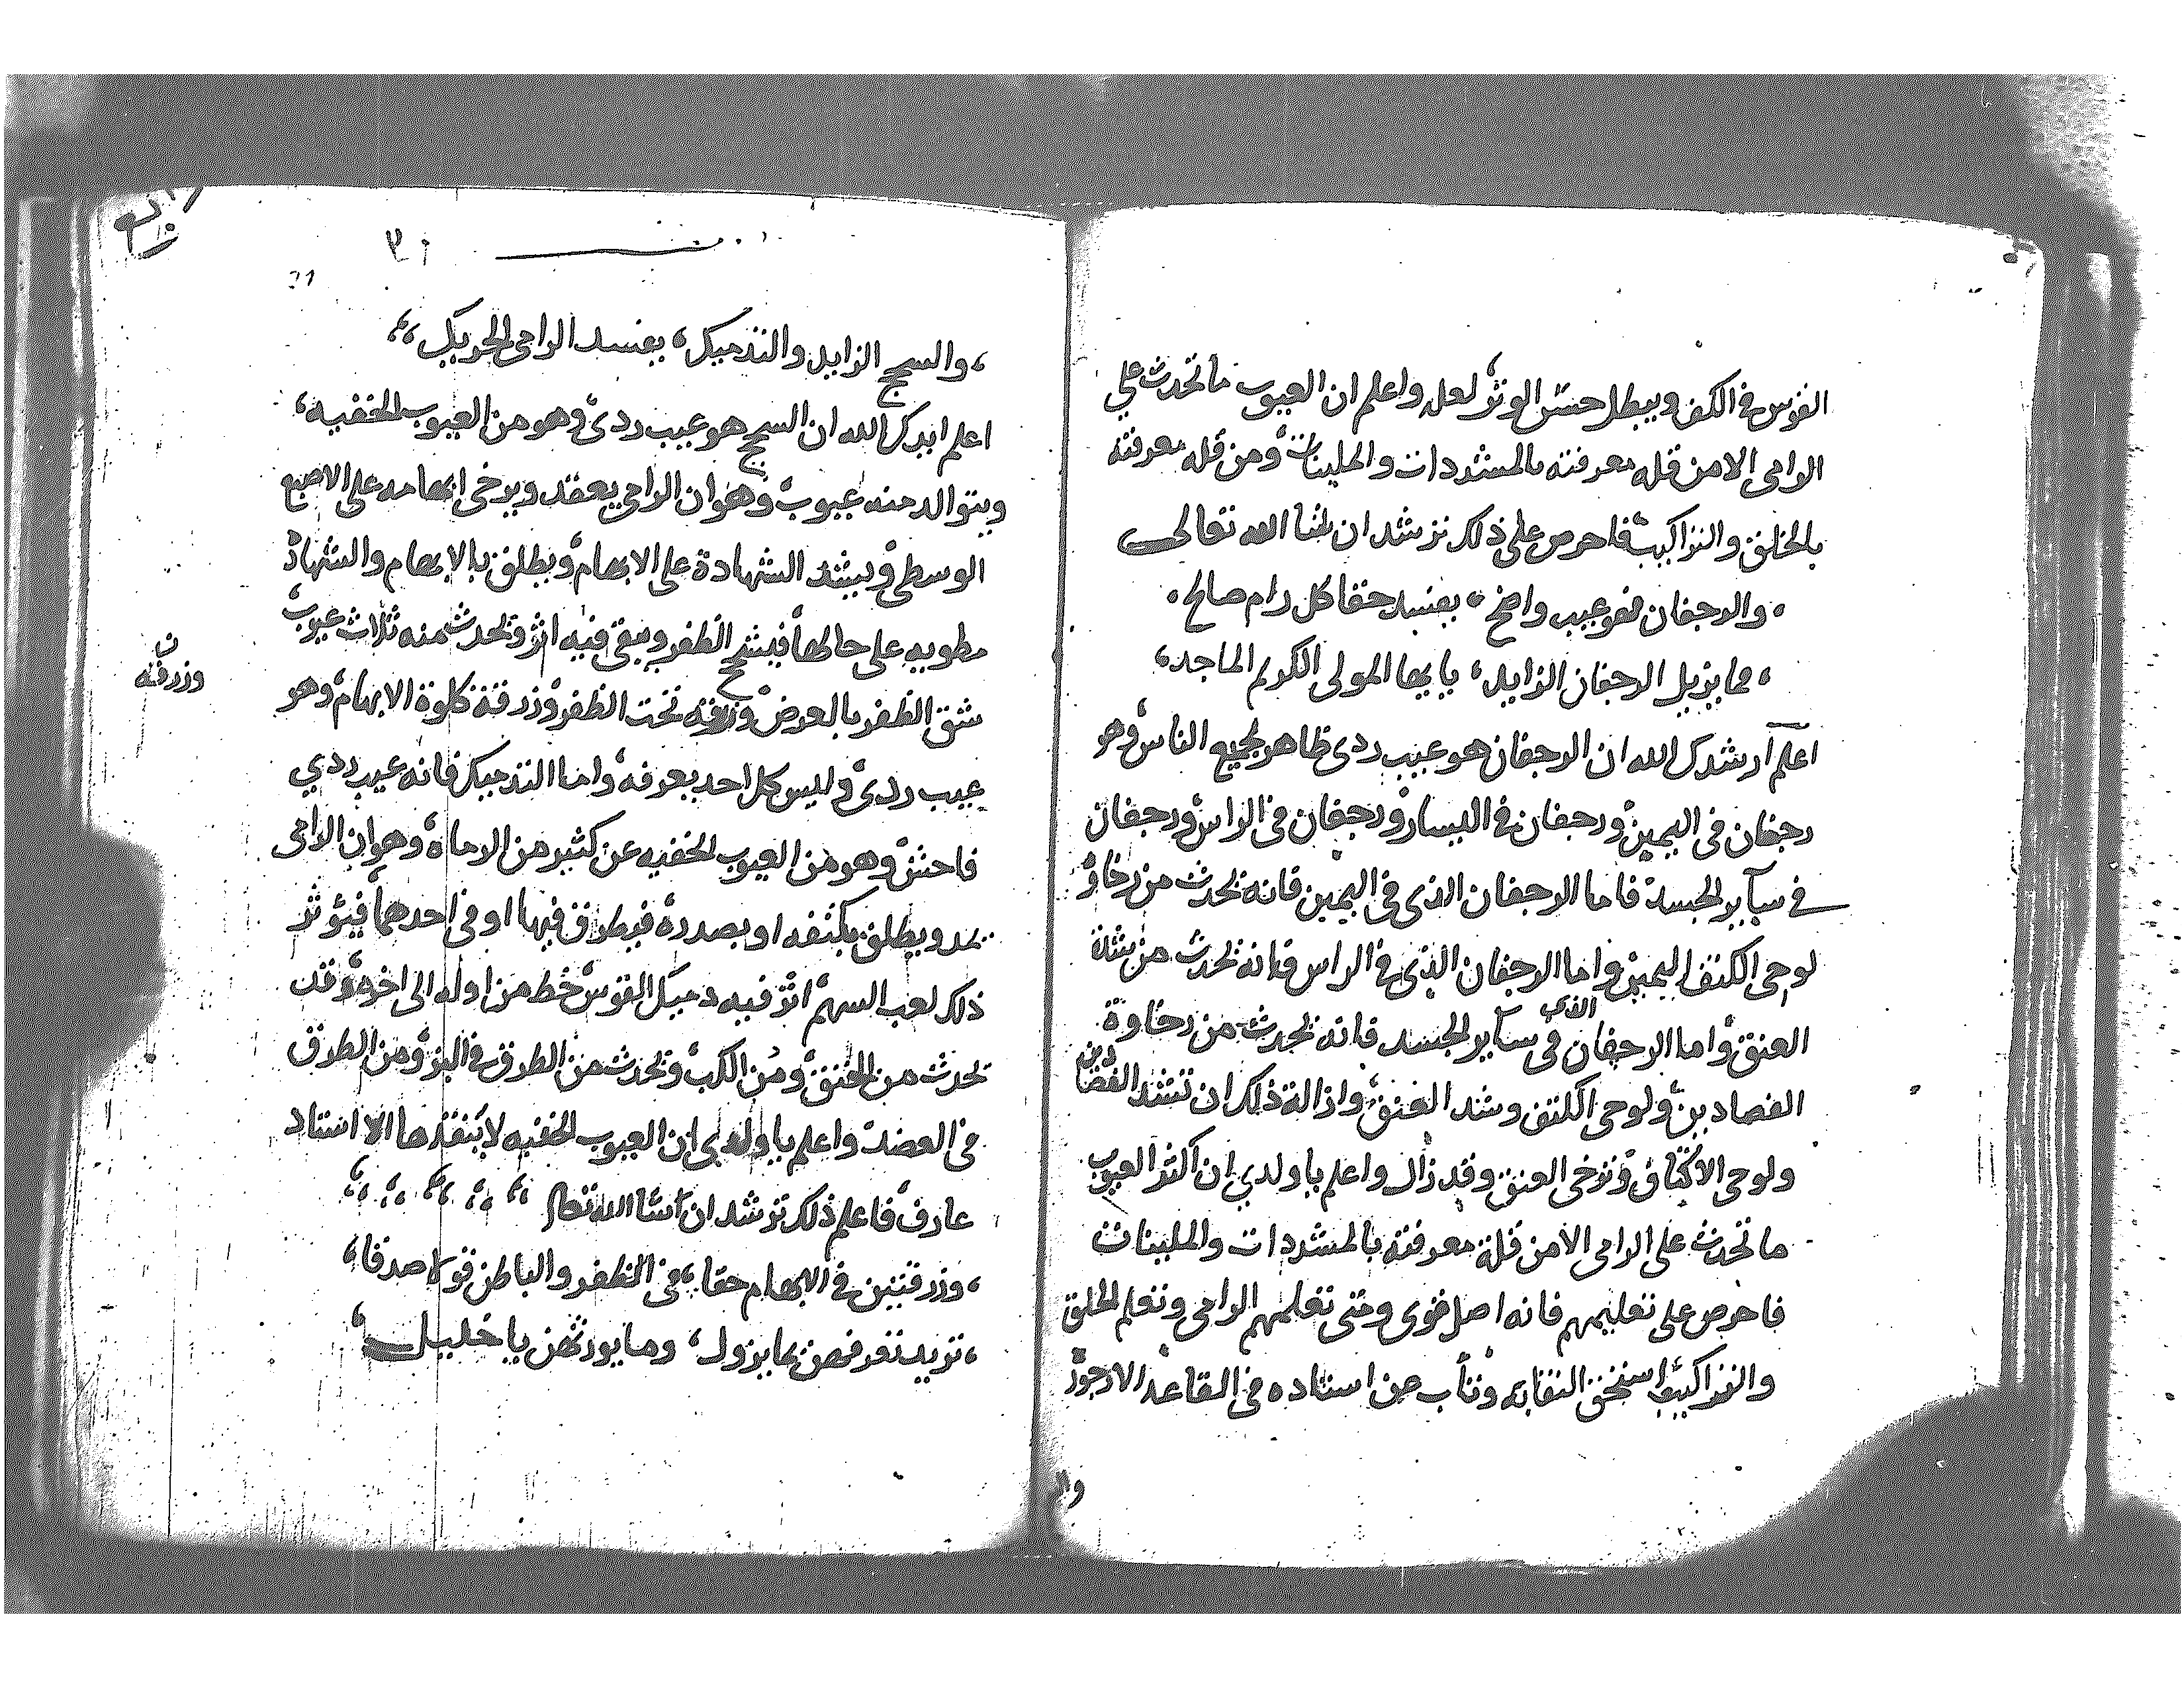 القوس في الكف ويبطل حسن الوتر لعله واعلم ان العيوب ما تحدث علي
الرامى الا من قله معرفته بالمشددات والملينات ومن قله معرفته
بالخلق والتراكيب فاحرص على ذلك ترشد ان شا الله تعالى
والرجفان فهو عيب واضح يفسد حقا كل رام صالح
مما يزيل الرجفان الزايد يا يها المولى الكريم الماجد
اعلم ارشدك الله ان الرجفان هو عيب ردى ظاهر لجميع الناس وهو
رجفان فى اليمين ورجفان في اليسار ورجفان فى الراس ورجفان
في ساير الجسد فاما الرجفان الذى فى اليمين فانه تحدث من رخاوة
لوحى الكتف اليمين واما الرجفان الذى في الراس فانه تحدث من شدة
العنق واما الرجفان الذى فى ساير الجسد فانه تحدث من رخاوة
العضادين ولوحى الكتف وشد العنق وازالة ذلك ان تشد العضادين
ولوحى الاكتاف وترخى العنق وقد زال واعلم يا ولدي ان اكثر العيوب
ما تحدث على الرامى الا من قلة معرفته بالمشددات والملينات
فاحرص على تعليمهم فانه اصل قوى ومتى تعلمهم الرامى وتعلم الخلق
والتراكيب استحق النقابه وناب عن استاده فى القاعد الارجوز
وال
٣١
والسحج الزايد والتذميك يفسد الرامى الحريك
اعلم ايدك الله ان السحج هو عيب ردىء وهو من العيوب الخفيه
ويتوالد منه عيوب وهو ان الرامى يعقد ويرخى ابهامه على الاصبع
الوسطى ويشد الشهادة على الابهام ويطلق بالابهام والشهادة
مطويه على حالها فيسحج الظفر ويبقى فيه اثر وتحدث منه ثلاث عيوب
شق الظفر بالعرض وزرقه تحت الظفر وزرقة كلوة الابهام وهو
وزرقه
عيب ردىء وليس كل احد يعرفه واما التذميك فانه عيب ردي
فاحش وهو من العيوب الخفيه عن كثير من الرماة وهو ان الرامى
يمد ويطلق بكتفه او بصدره فيطرق فيها او فى احدهما فيؤثر
ذلك لعب السهم اثر فيه دميك القوس خط من اوله الى اخره وقد
تحدث من العنق ومن الكب وتحدث من الطرق في البز ومن الطرق
فى العضد واعلم يا ولدى ان العيوب الخفيه لا ينقدها الا استاد
عارف فاعلم ذلك ترشد ان شا الله تعالى
وزرقتين في الابهام حقا فى الظفر والباطن قولا صدقا
تريد تعرفهن بما يزول وما يورثهن يا خليل